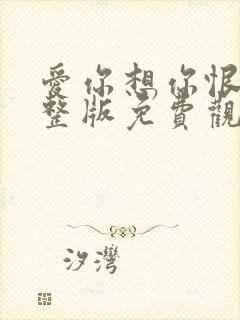 愛你想你恨
整版免費觀
汐灣